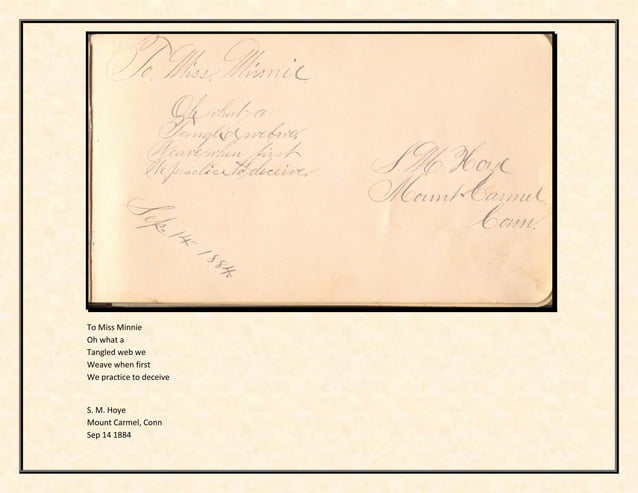 To. Miss. Minnie.
Oh what a
Tangled web we
Weave when first
We practice to deceive
Sept 14th 1884.
S M Hoye
Mount Carmel
Conn.
To Miss Minnie
Oh what a
Tangled web we
Weave when first
We practice to deceive
S. M. Hoye
Mount Carmel, Conn
Sep 14 1884